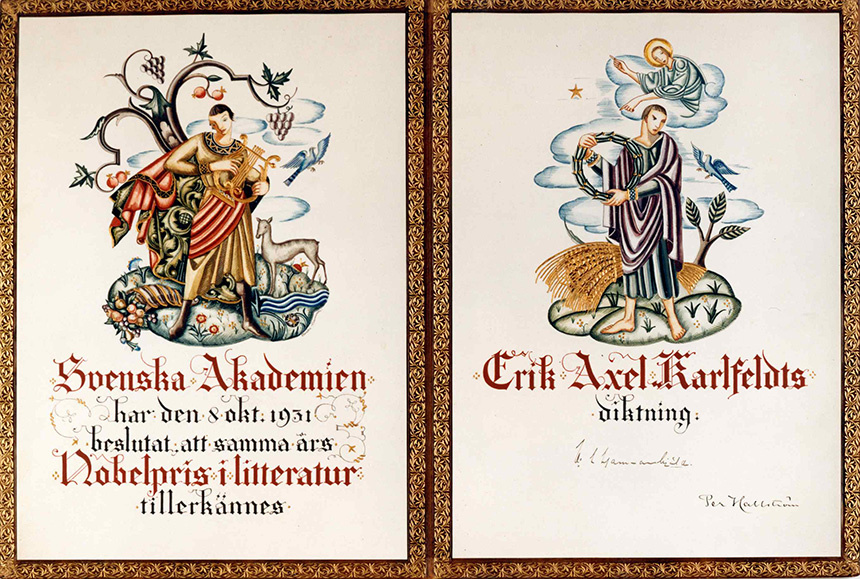 Svenska Akademien
har den 8 okt. 1931
beslutat att samma års
Nobelpris i litteratur
tillerkännes
Erik Axel Karlfeldts
diktning.
Per Hallström